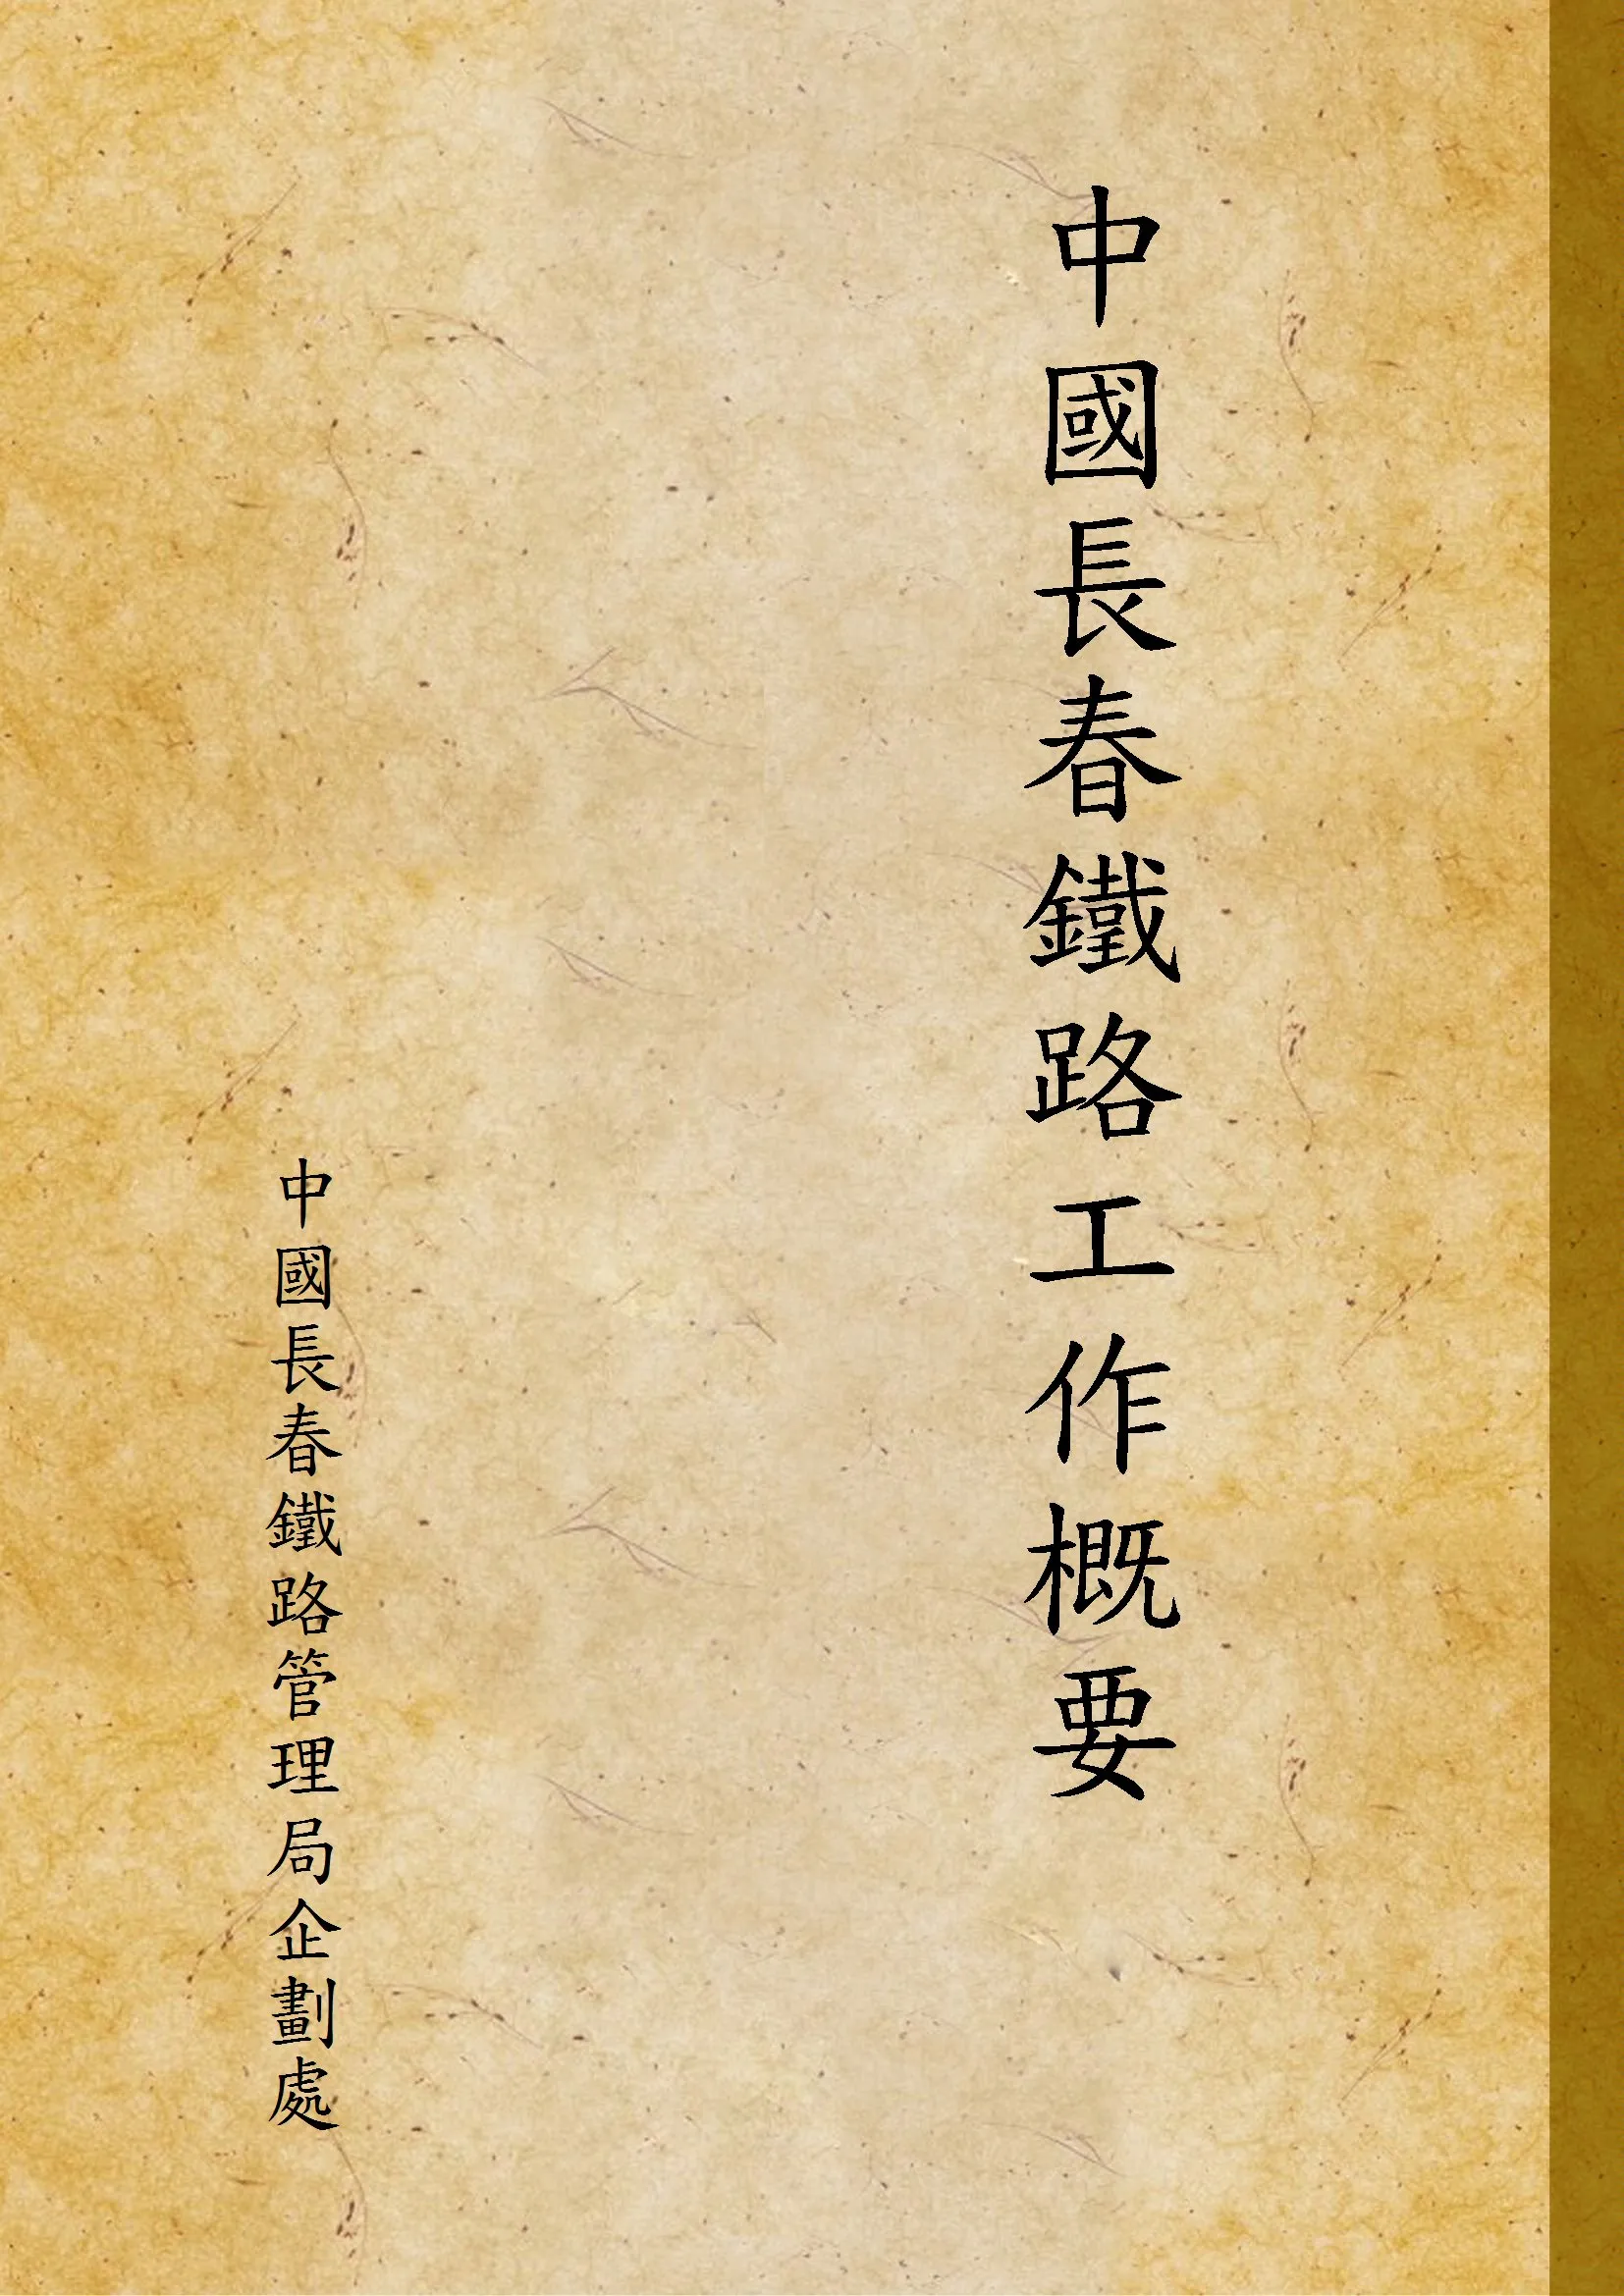 中國長春鐵路工作概要
中國長春鐵路管理局企劃處